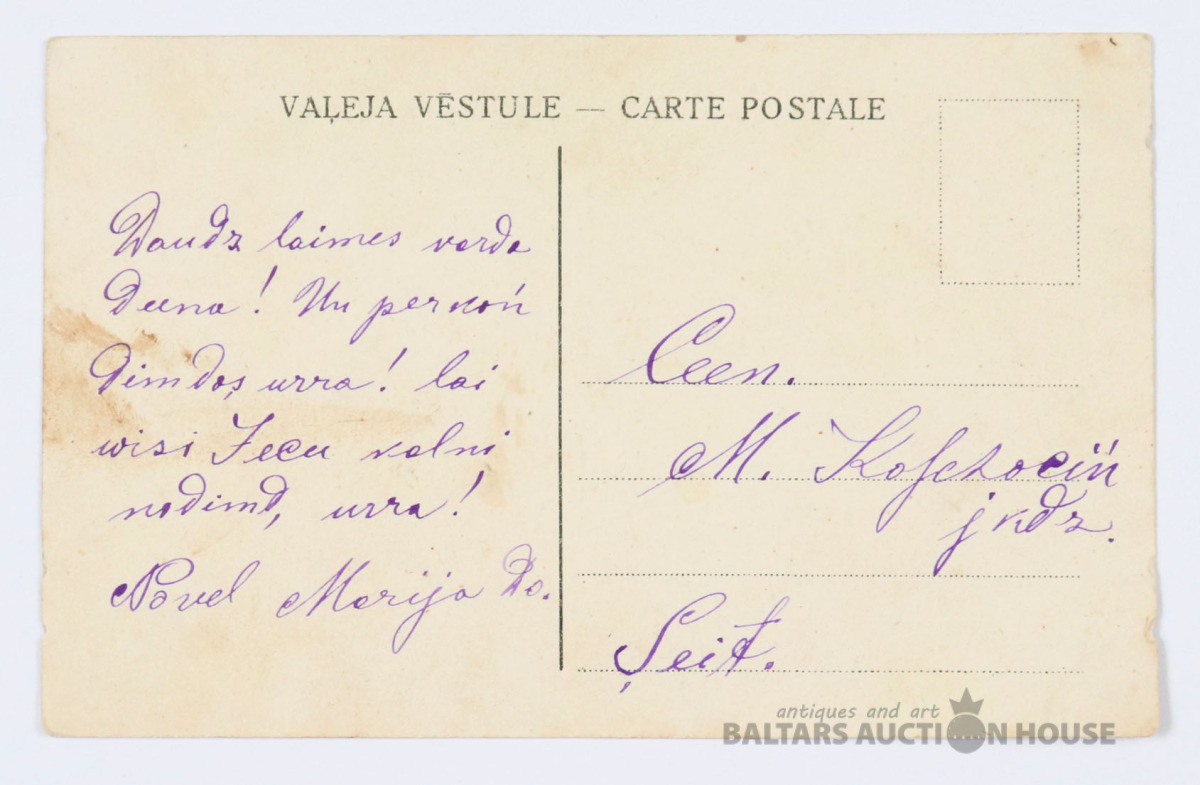 VAĻEJA VĒSTULE — CARTE POSTALE
Daudz laimes varda
deena! Un perkoń
dimdoş urra! lai
wisi Jecu kalni
nodimd, urra!
Novel Marija Do.
Ceen.
M.
jkdz.
Şeit.
antiques and art
BALTARS AUCTION HOUSE